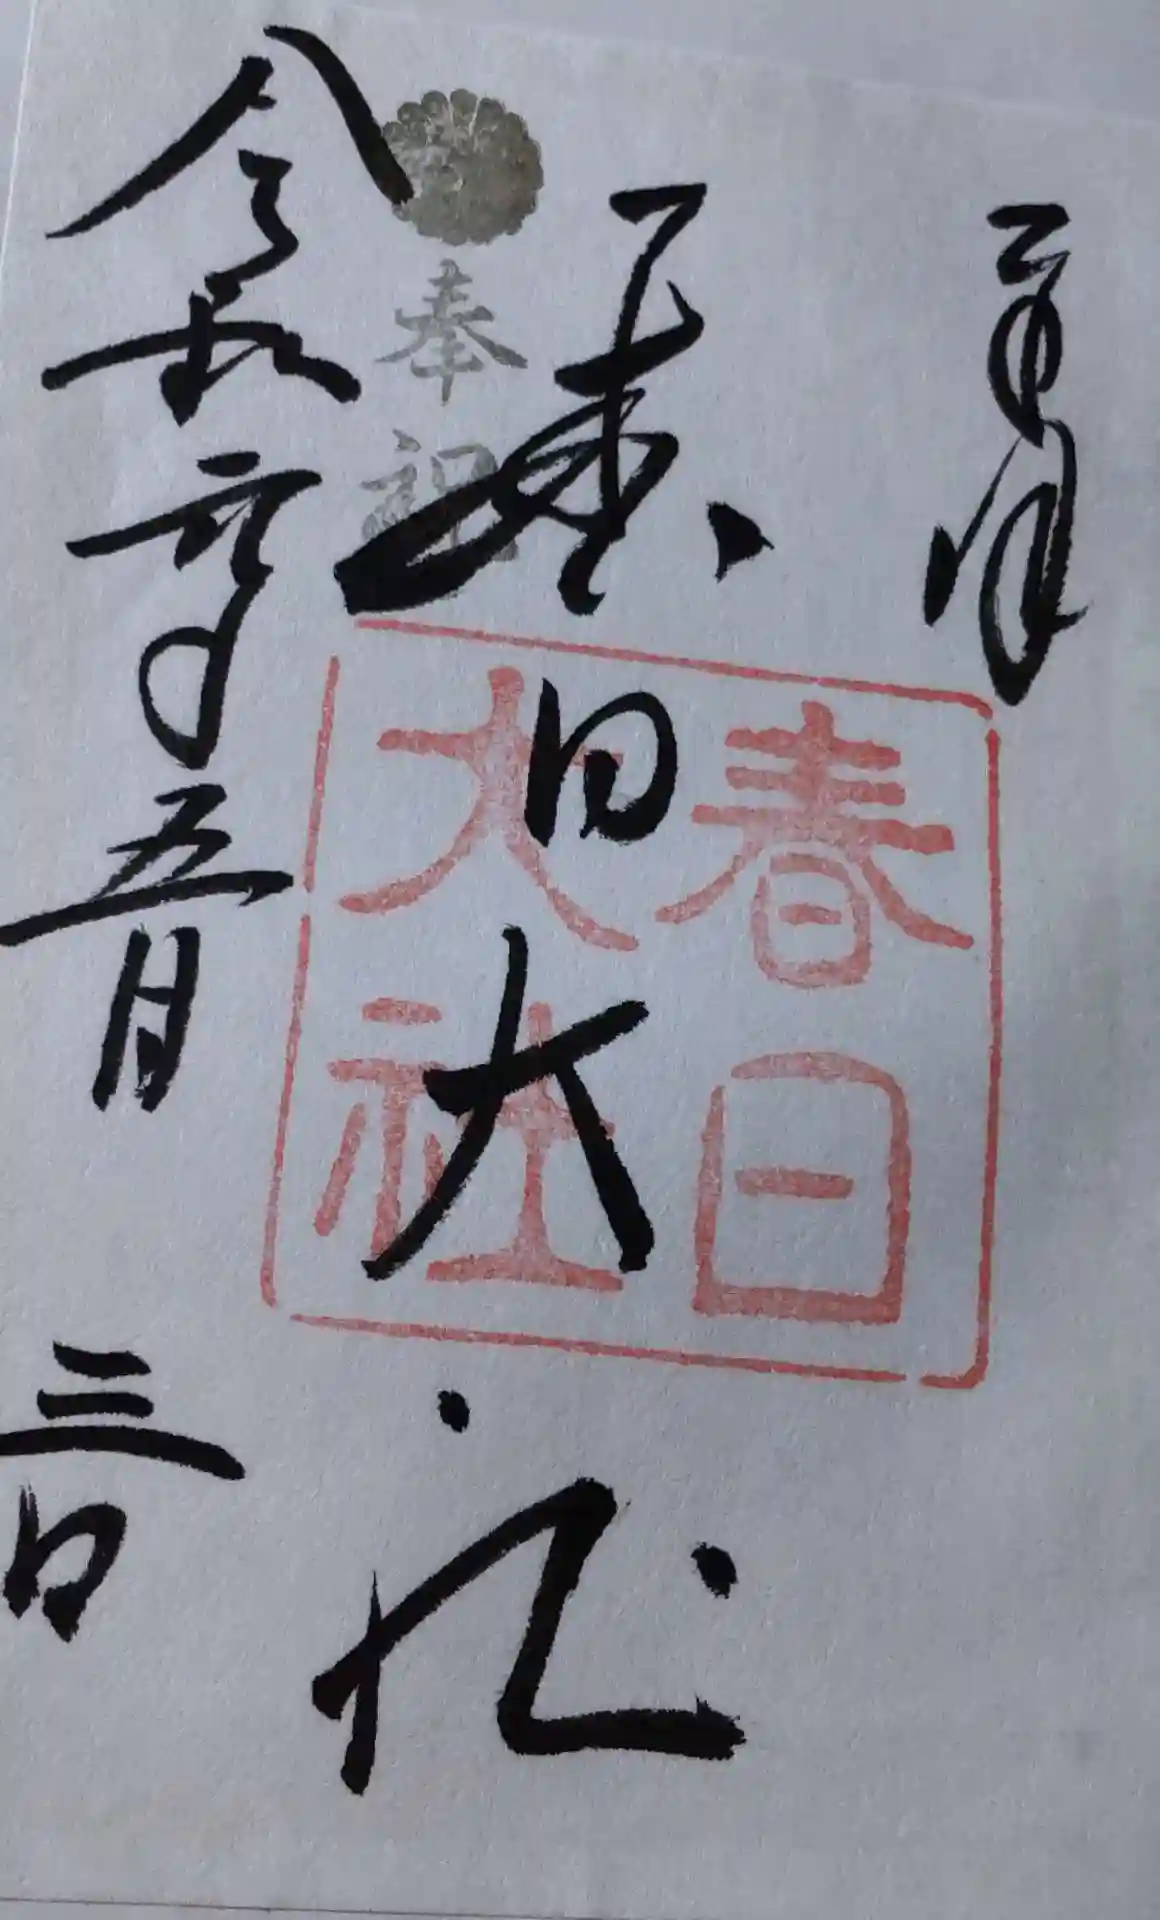 奉拝
春日大社
春日
大社
奉祝
令和元年五月三日